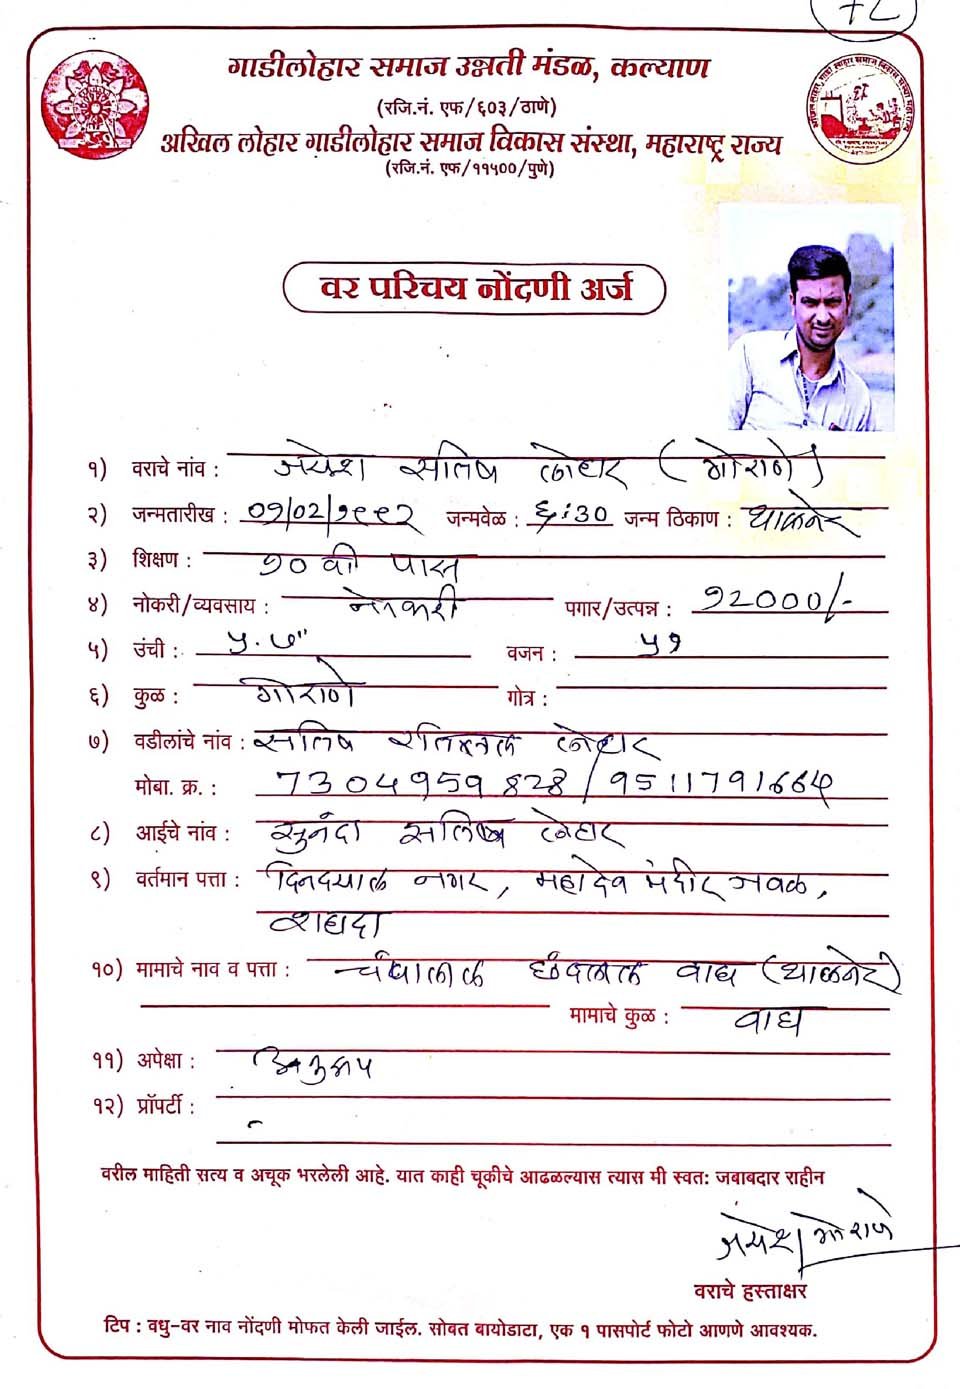 गाडीलोहार समाज उन्नती मंडळ, कल्याण
(रजि.नं. एफ/६०३/ठाणे)
अखिल लोहार गाडीलोहार समाज विकास संस्था, महाराष्ट्र राज्य
(रजि.नं. एफ/११५००/पुणे)
वर परिचय नोंदणी अर्ज
१) वराचे नांव : जयेश सतिष लोहार (गोराणे)
२) जन्मतारीख : 09/02/१९९२ जन्मवेळ : ६:30 जन्म ठिकाण : थाळनेर
३) शिक्षण : १० वी पास
४) नोकरी/व्यवसाय : नोकरी पगार/उत्पन्न : १२000/-
५) उंची : ५.७" वजन : ५१
६) कुळ : गोराणे गोत्र :
७) वडीलांचे नांव : सतिष रतिलाल लोहार
मोबा. क्र. : 7304959828/9511791664
८) आईचे नांव : सुनंदा सतिष लोहार
९) वर्तमान पत्ता : दिनदयाल नगर, महादेव मंदीर जवळ,
शहादा
१०) मामाचे नाव व पत्ता : चंपालाल वाघ (थाळनेर)
मामाचे कुळ : वाघ
११) अपेक्षा : अनुरूप
१२) प्रॉपर्टी : -
वरील माहिती सत्य व अचूक भरलेली आहे. यात काही चूकीचे आढळल्यास त्यास मी स्वत: जबाबदार राहीन
जयेश गोराणे
वराचे हस्ताक्षर
टिप : वधु-वर नाव नोंदणी मोफत केली जाईल. सोबत बायोडाटा, एक १ पासपोर्ट फोटो आणणे आवश्यक.